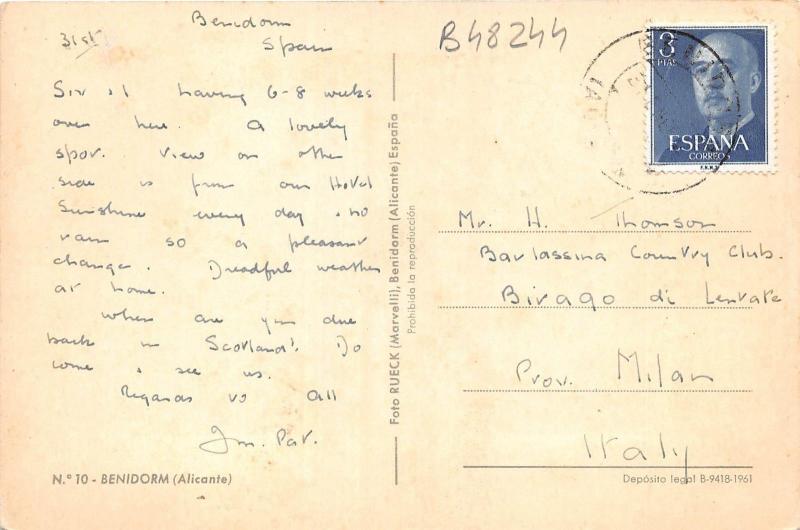 Benidorm
31st
Spain
Sir & I having 6-8 weeks
over here. A lovely
spot. View on other
side is from our Hotel
Sunshine every day & no
rain so a pleasant
change. Dreadful weather
at home.
When are you due
back in Scotland? Do
come & see us.
Regards to All
Jm. Pat.
N.º 10 - BENIDORM (Alicante)
Foto RUECK (Marvelli), Benidorm (Alicante) España
Prohibida la reproducción
B48244
3
PTAS
ESPAÑA
CORREOS
F.N.M.T.
Mr. H. Thomson
Barlassina Country Club.
Birago di Lentate
Prov. Milan
Italy
Depósito legal B-9418-1961